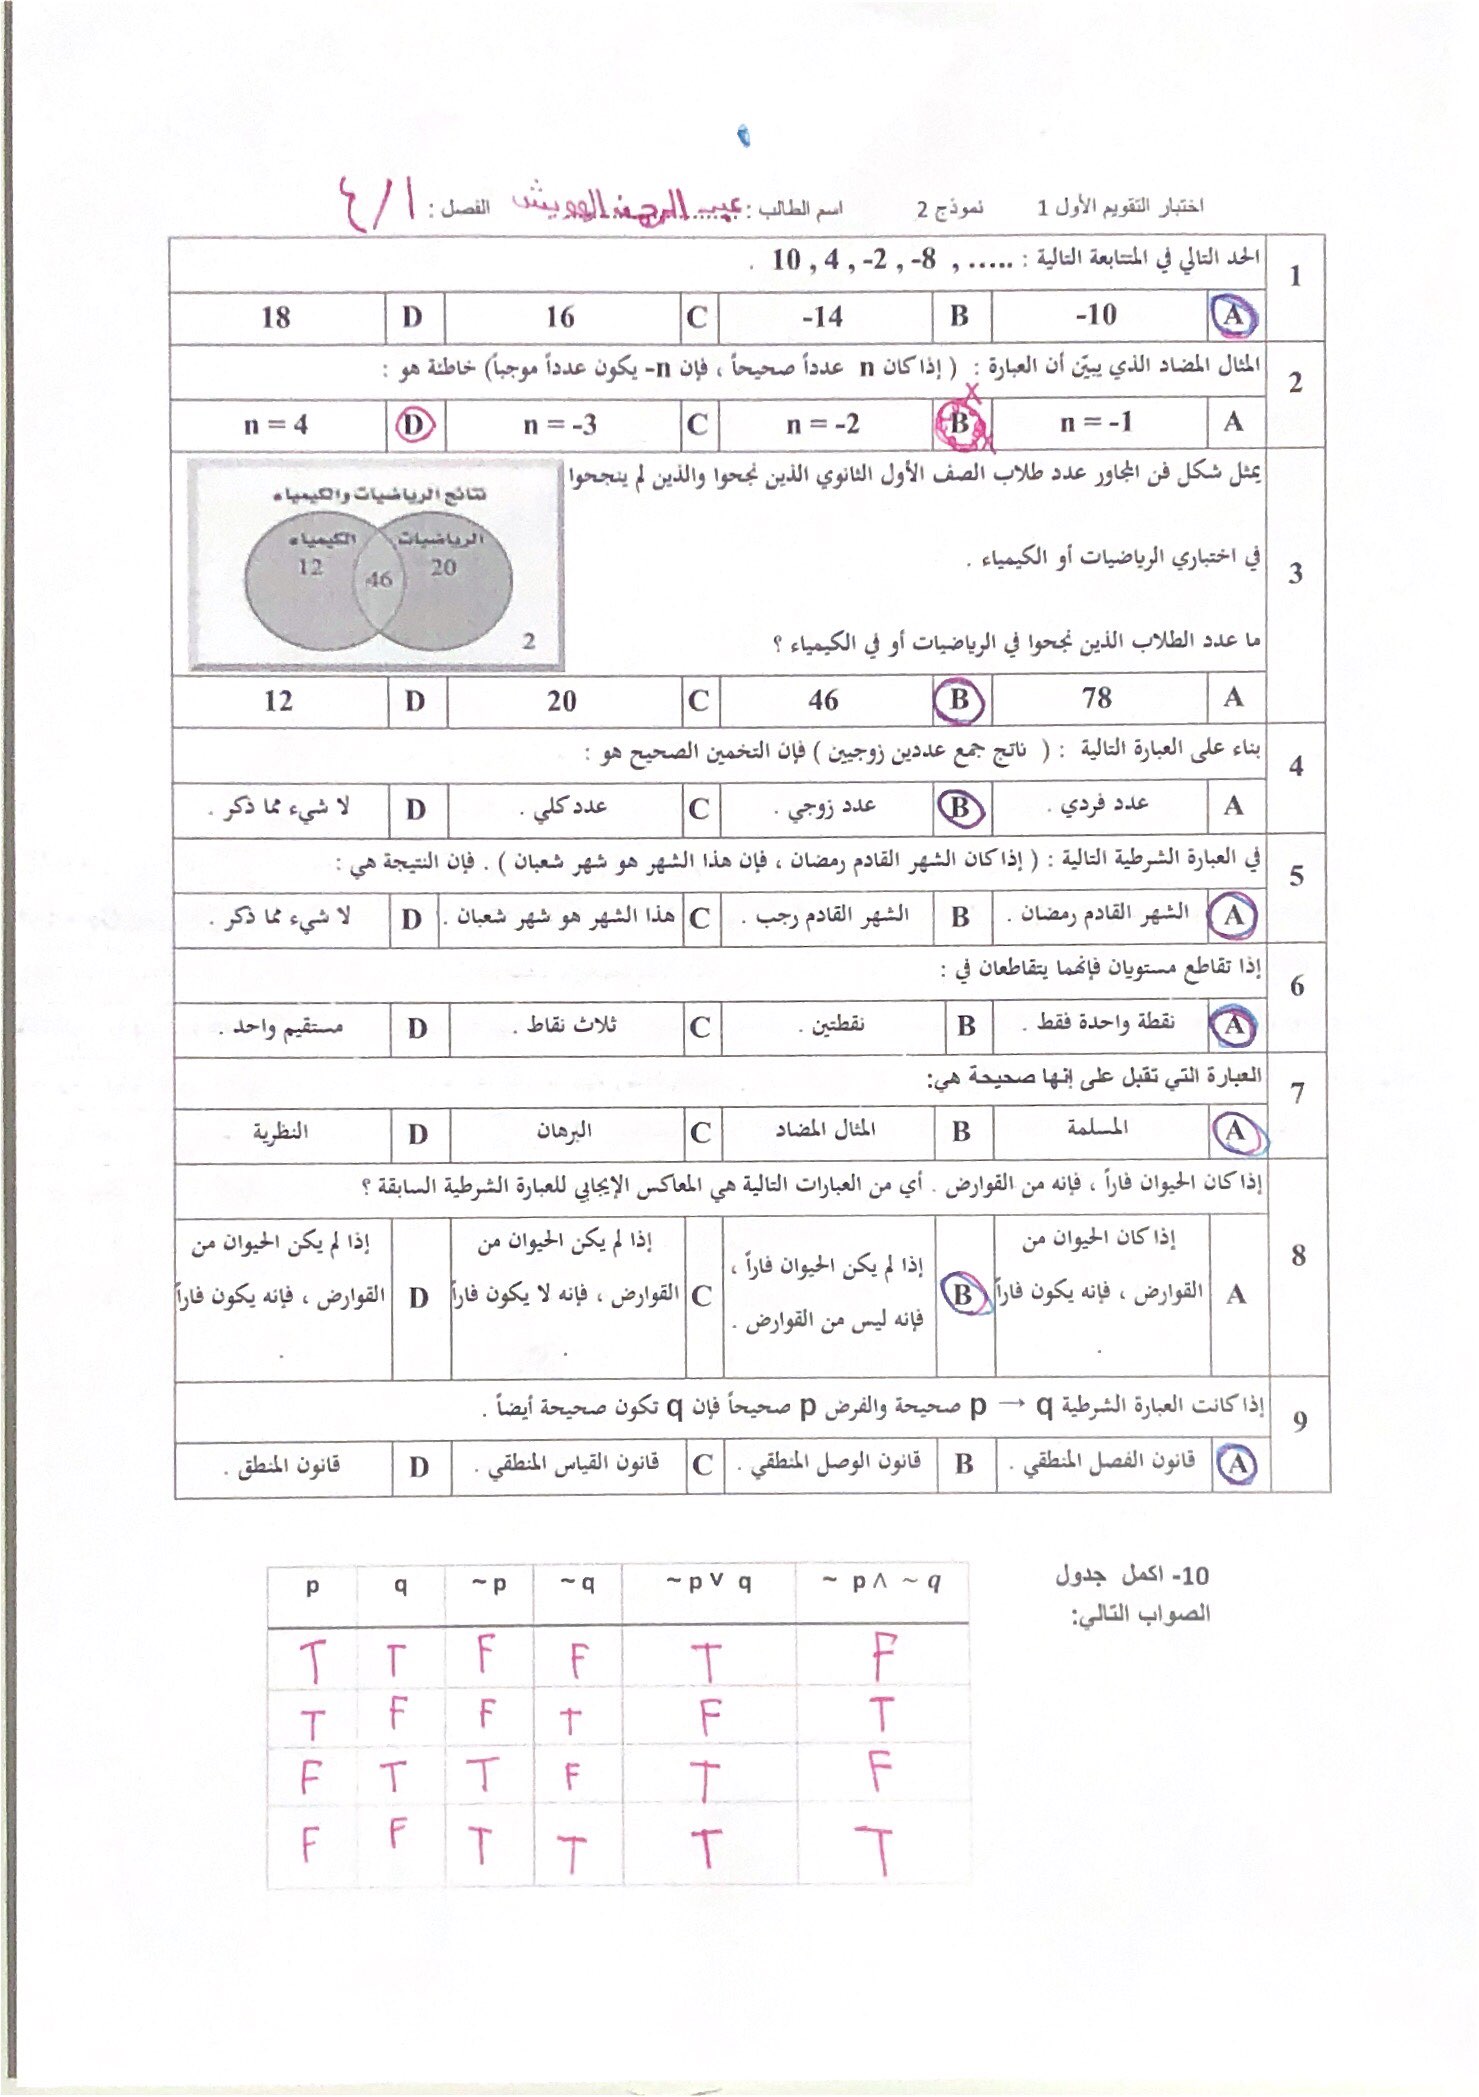 اختبار التقويم الأول 1 نموذج 2 اسم الطالب : عبد الرحمن الهويش الفصل : ٤/١
1 الحد التالي في المتتابعة التالية : ..... , 10 , 4 , -2 , -8 .
A -10 B -14 C 16 D 18
2 المثال المضاد الذي يبيّن أن العبارة : ( إذا كان n عدداً صحيحاً ، فإن n- يكون عدداً موجباً) خاطئة هو :
A n = -1 B n = -2 C n = -3 D n = 4
3 يمثل شكل فن المجاور عدد طلاب الصف الأول الثانوي الذين نجحوا والذين لم ينجحوا
في اختباري الرياضيات أو الكيمياء .
ما عدد الطلاب الذين نجحوا في الرياضيات أو في الكيمياء ؟
نتائج الرياضيات والكيمياء
الرياضيات الكيمياء
20 46 12
2
A 78 B 46 C 20 D 12
4 بناء على العبارة التالية : ( ناتج جمع عددين زوجيين ) فإن التخمين الصحيح هو :
A عدد فردي . B عدد زوجي . C عدد كلي . D لا شيء مما ذكر .
5 في العبارة الشرطية التالية : ( إذا كان الشهر القادم رمضان ، فإن هذا الشهر هو شهر شعبان ) . فإن النتيجة هي :
A الشهر القادم رمضان . B الشهر القادم رجب . C هذا الشهر هو شهر شعبان . D لا شيء مما ذكر .
6 إذا تقاطع مستويان فإنهما يتقاطعان في :
A نقطة واحدة فقط . B نقطتين . C ثلاث نقاط . D مستقيم واحد .
7 العبارة التي تقبل على إنها صحيحة هي:
A المسلمة B المثال المضاد C البرهان D النظرية
8 إذا كان الحيوان فاراً ، فإنه من القوارض . أي من العبارات التالية هي المعاكس الإيجابي للعبارة الشرطية السابقة ؟
A إذا كان الحيوان من القوارض ، فإنه يكون فاراً . B إذا لم يكن الحيوان فاراً ، فإنه ليس من القوارض . C إذا لم يكن الحيوان من القوارض ، فإنه لا يكون فاراً . D إذا لم يكن الحيوان من القوارض ، فإنه يكون فاراً .
9 إذا كانت العبارة الشرطية p → q صحيحة والفرض p صحيحاً فإن q تكون صحيحة أيضاً .
A قانون الفصل المنطقي . B قانون الوصل المنطقي . C قانون القياس المنطقي . D قانون المنطق .
10- اكمل جدول
الصواب التالي:
p q ~p ~q ~p ∨ q ~ p ∧ ~q
T T F F T F
T F F T F T
F T T F T F
F F T T T T